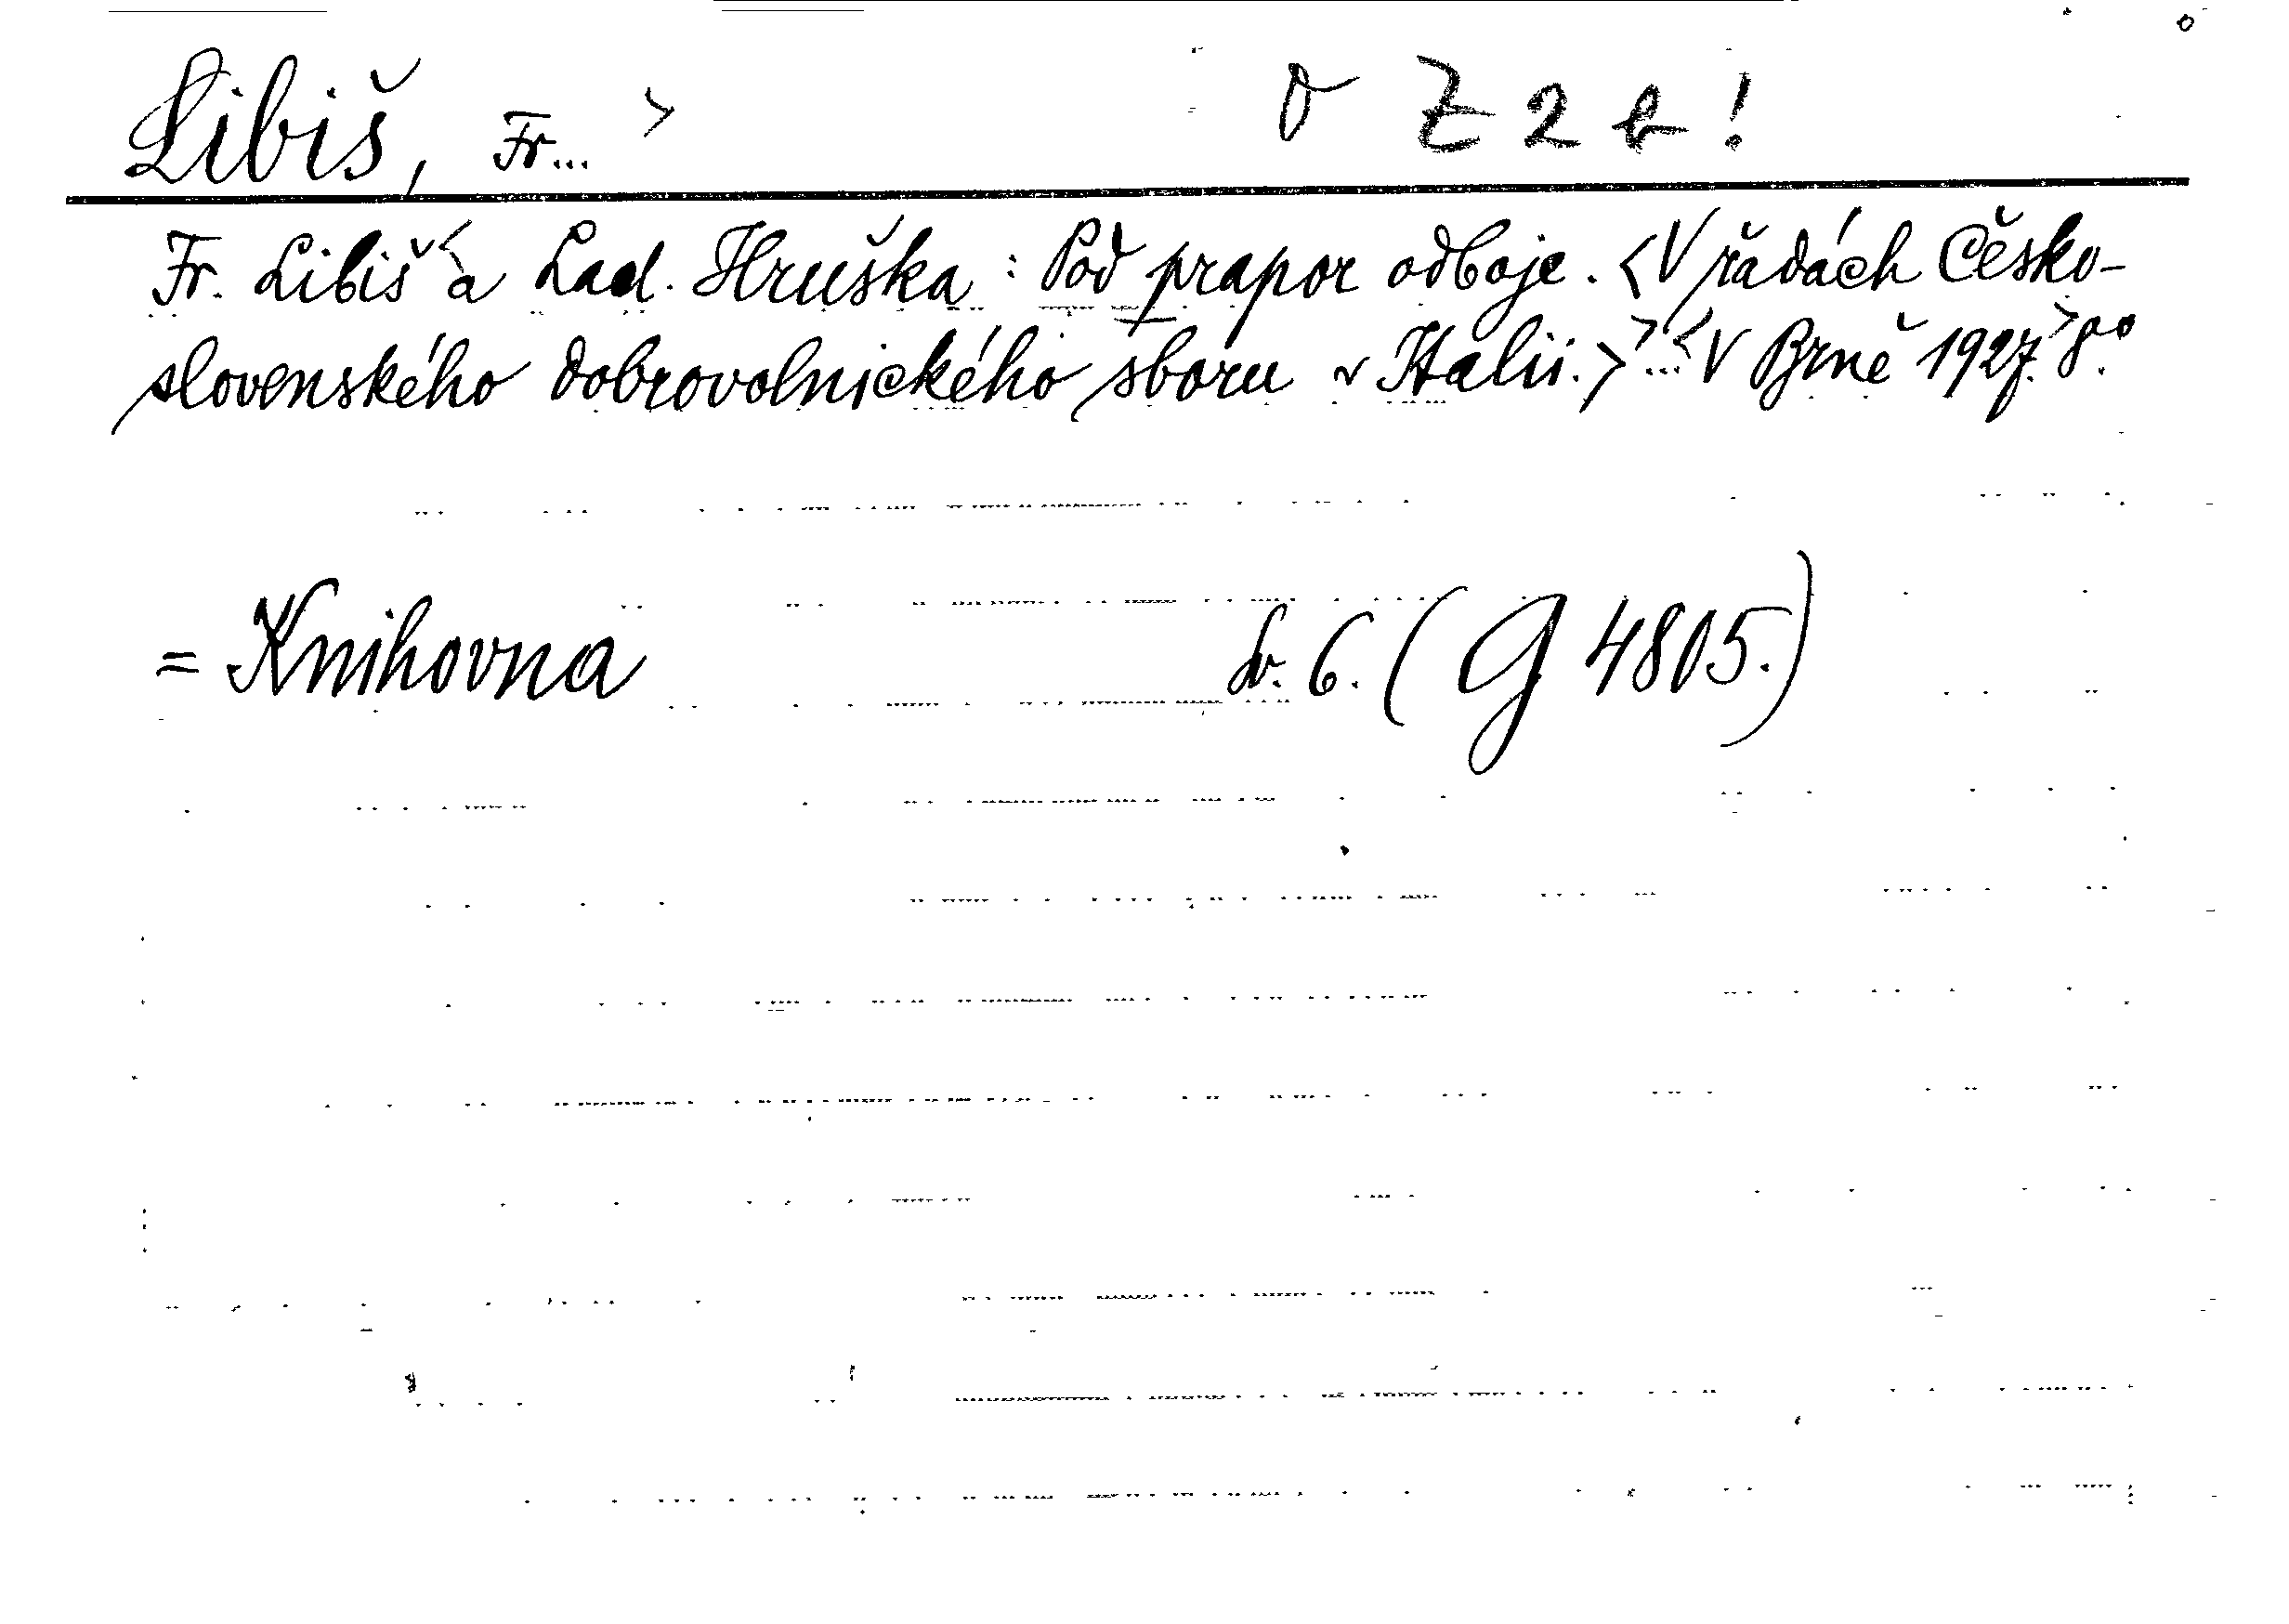 Libiš, Fr... > O Z 2 b !
Fr. Libiš < a Lad. Hruška : Pod prapor odboje. <V řadách Česko-
slovenského dobrovolnického sboru v Italii.> > ... < V Brně 1927. > 8°.
= Knihovna sv. 6. (G 4805.)